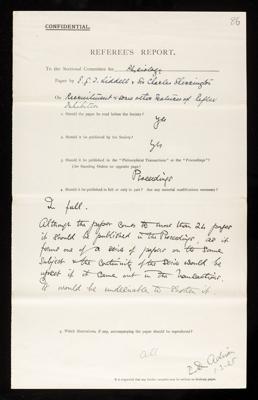 86
CONFIDENTIAL.
REFEREE'S REPORT.
To the Sectional Committee for Physiology
Paper by E. G. T. Liddell & Sir Charles Sherrington
On Recruitment & some other features of reflex
Inhibition
1. Should the paper be read before the Society?
Yes
2. Should it be published by the Society?
Yes
3. Should it be published in the "Philosophical Transactions" or the "Proceedings"?
(See Standing Orders on opposite page)
Proceedings
4. Should it be published in full or only in part? Are any material modifications necessary?
In full.
Although the paper comes to more than 24 pages
it should be published in the Proceedings, as it
forms one of a series of papers on the same
subject & the continuity of the series would be
upset if it came out in the Transactions.
It would be undesirable to shorten it.
5. Which illustrations, if any, accompanying the paper should be reproduced?
all
E D Adrian
1-3-25
It is requested that any further remarks may be written on